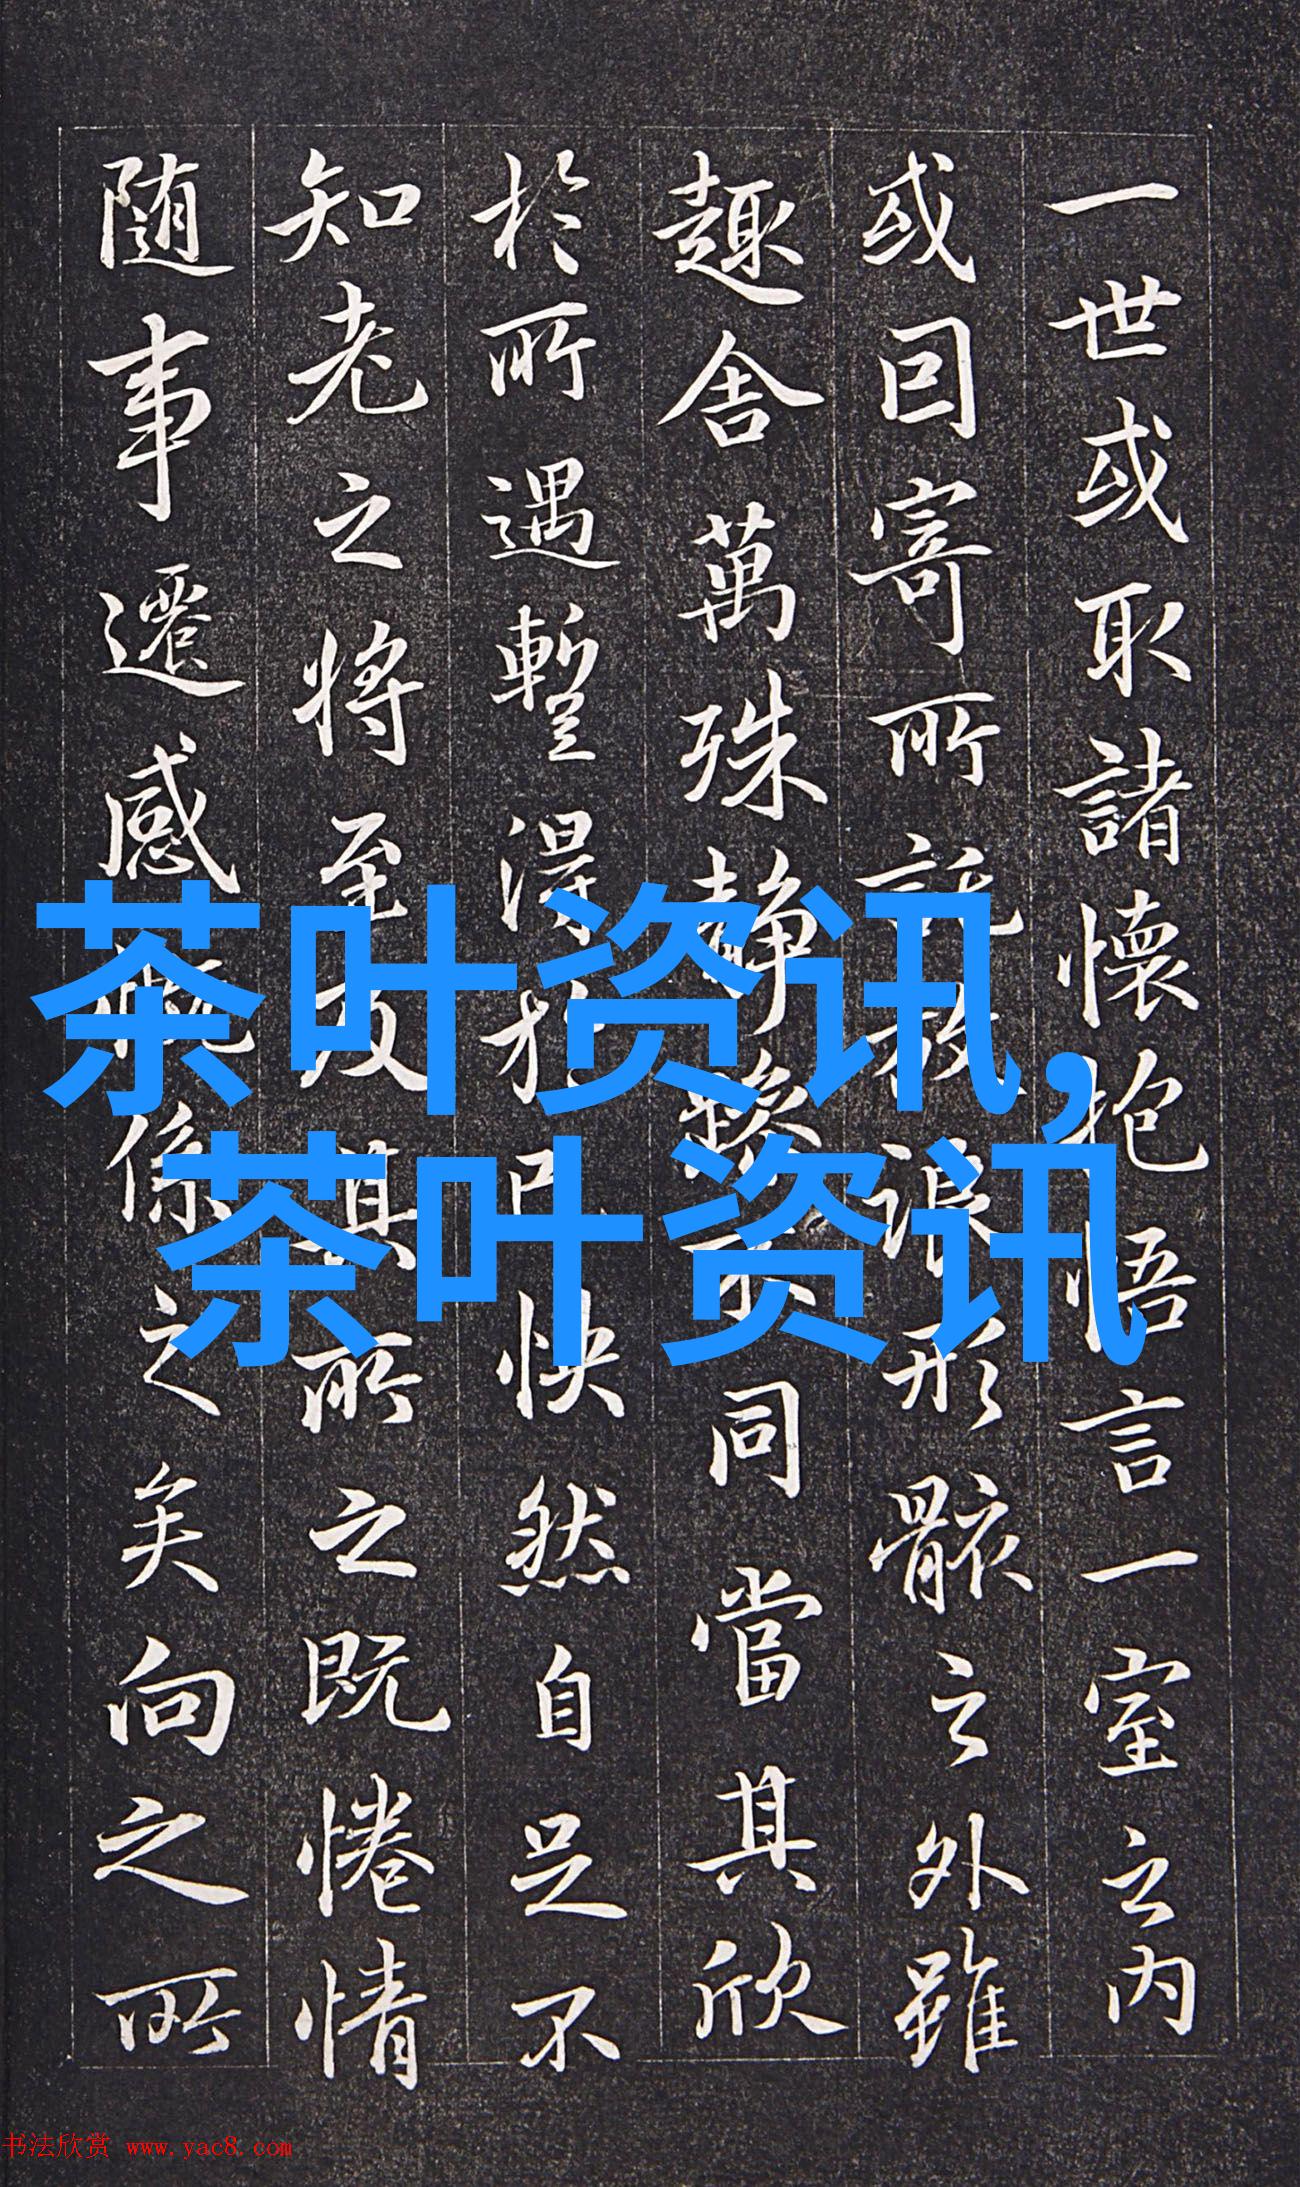 一世或取諸懷抱悟言一室之内
或因寄所託放浪形骸之外雖
趣舎萬殊静躁不同當其欣
於所遇暫得於己快然自足不
知老之將至及其所之既惓情
随事遷感慨係之矣向之所
茶叶资讯,
茶叶资讯
书法欣赏 www.yac8.com